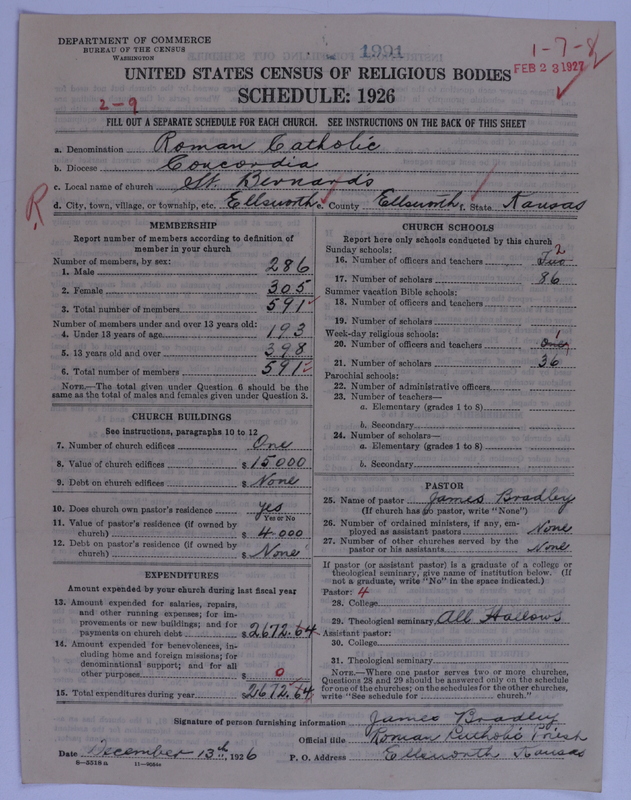 DEPARTMENT OF COMMERCE
BUREAU OF THE CENSUS
WASHINGTON
1991
1-7-8
FEB 23 1927
UNITED STATES CENSUS OF RELIGIOUS BODIES
SCHEDULE: 1926
2-9
FILL OUT A SEPARATE SCHEDULE FOR EACH CHURCH. SEE INSTRUCTIONS ON THE BACK OF THIS SHEET
a. Denomination Roman Catholic
b. Diocese Concordia
c. Local name of church St. Bernard's
R
d. City, town, village, or township, etc. Ellsworth e. County Ellsworth f. State Kansas
MEMBERSHIP
Report number of members according to definition of
member in your church
Number of members, by sex:
1. Male 286
2. Female 305
3. Total number of members 591
Number of members under and over 13 years old:
4. Under 13 years of age 193
5. 13 years old and over 398
6. Total number of members 591
NOTE.—The total given under Question 6 should be the
same as the total of males and females given under Question 3.
CHURCH BUILDINGS
See instructions, paragraphs 10 to 12
7. Number of church edifices One
8. Value of church edifices $ 15000
9. Debt on church edifices $ None
10. Does church own pastor's residence yes
Yes or No
11. Value of pastor's residence (if owned by
church) $ 4000
12. Debt on pastor's residence (if owned by
church) $ None
EXPENDITURES
Amount expended by your church during last fiscal year
13. Amount expended for salaries, repairs,
and other running expenses; for im-
provements or new buildings; and for
payments on church debt $ 2672.64
14. Amount expended for benevolences, in-
cluding home and foreign missions; for
denominational support; and for all
other purposes $ 0
15. Total expenditures during year $ 2672.64
CHURCH SCHOOLS
Report here only schools conducted by this church
Sunday schools:
16. Number of officers and teachers Two 2
17. Number of scholars 86
Summer vacation Bible schools:
18. Number of officers and teachers
19. Number of scholars
Week-day religious schools:
20. Number of officers and teachers One 1
21. Number of scholars 36
Parochial schools:
22. Number of administrative officers
23. Number of teachers—
a. Elementary (grades 1 to 8)
b. Secondary
24. Number of scholars—
a. Elementary (grades 1 to 8)
b. Secondary
PASTOR
25. Name of pastor James Bradley
(If church has no pastor, write "None")
26. Number of ordained ministers, if any, em-
ployed as assistant pastors None
27. Number of other churches served by the
pastor or his assistants None
If pastor (or assistant pastor) is a graduate of a college or
theological seminary, give name of institution below. (If
not a graduate, write "No" in the space indicated.)
Pastor: 4
28. College
29. Theological seminary All Hallows
Assistant pastor:
30. College
31. Theological seminary
NOTE.—Where one pastor serves two or more churches,
Questions 28 and 29 should be answered only on the schedule
for one of the churches; on the schedules for the other churches,
write "See schedule for church."
Signature of person furnishing information James Bradley
Official title Roman Catholic Priest
Date December 13th, 1926 P. O. Address Ellsworth Kansas
8—5518a